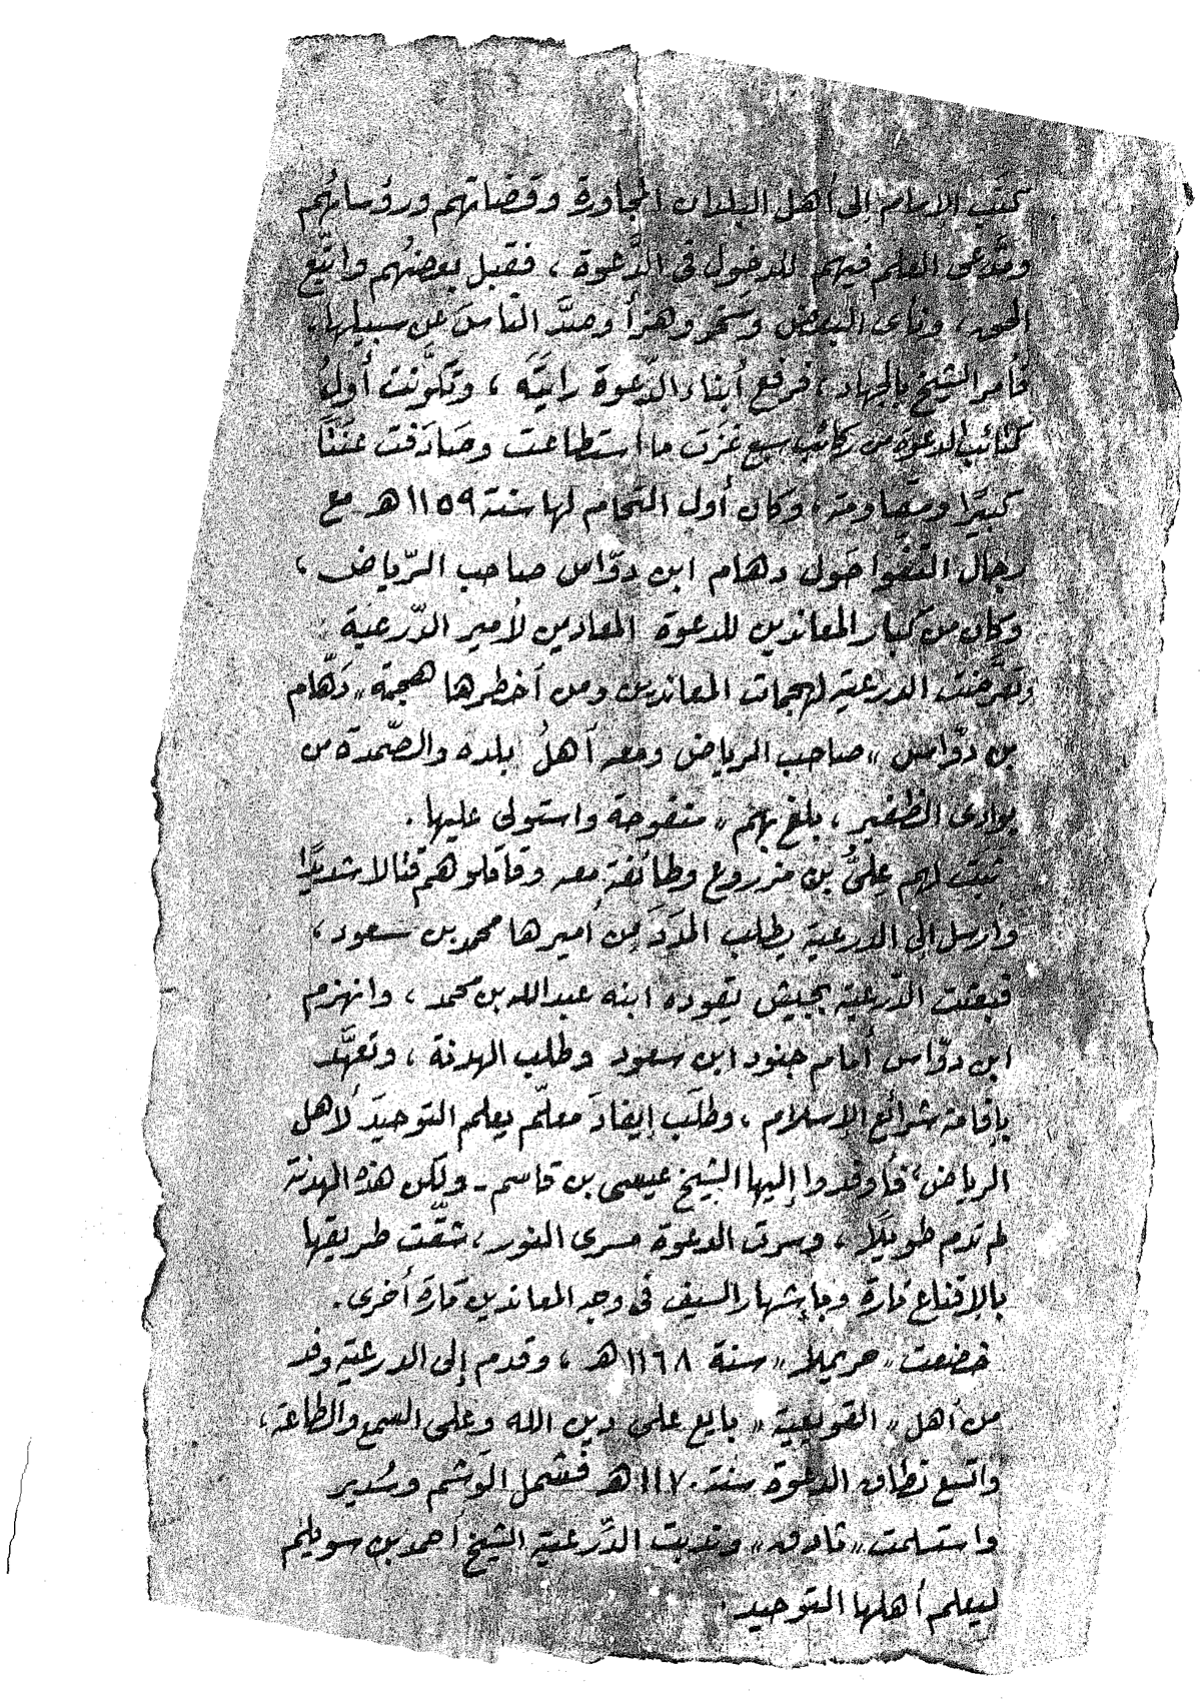 كتب الإمام إلى أهل البلدان المجاورة وقضاتهم ورؤسائهم
ومدَّعى العلم فيهم للدخول فى الدَّعوة ، فقبل بعضُهم واتَّبع
الحق ، ونأى البعض وسَخر وهزأ وصدَّ الناسَ عن سبيلها.
فأمر الشيخ بالجهاد ، فرفع أبناء الدّعوة رايَتَه ، وتكوَّنت أولُ
كتائب الدعوة من ركائب سبع غزَت ما استطاعت وصَادَفت عنَتًا
كبيرًا ومقاومة ، وكان أول التحام لها سنة ١١٥٩ هـ مع
رجال التفّوا حَول دهام ابن دوّاس صاحب الرّياض ،
وكان من كبار المعاندين للدعوة المعادين لأمير الدّرعية
وتعرَّضت الدرعية لهجمات المعاندين ومن أخطرها هجمة " دَهّام
بن دوّاس " صاحب الرياض ومعه أهلُ بلده والصّمدة من
بوادى الظفير ، بلغ بهم " منفوحة واستولى عليها .
ثبَت لهم علىُّ بن مزروع وطائفة معه وقاتلوهم قتالا شديدًا
وأرسل إلى الدرعية يطلب المدَدَ من أميرها محمد بن سعود ،
فبعثت الدّرعية بجيش يقوده ابنه عبدالله بن محمد ، وانهزم
ابن دوّاس أمام جنود ابن سعود وطلب الهدنة ، وتعهَّد
بإقامة شرائع الإسلام ، وطلَب إيفادَ معلّم يعلم التوحيدَ لأهل
الرياض ، فأوفدوا إليها الشيخ عيسى بن قاسم - ولكن هذه الهدنة
لم تدم طويلًا ، وسرت الدعوة مسرى النور ، شقَّت طريقها
بالإقناع تارة وبإشهار السيف فى وجه المعاندين تارة أخرى .
خضعت " حريملا " سنة ١١٦٨ هـ ، وقدم إلى الدرعية وفد
من أهل " القويعية " بايع على دين الله وعلى السمع والطاعة ،
واتسع نطاق الدعوة سنة ١١٧٠ هـ فشمل الوَشم وسُدير
واستسلمت " ثادق " وندبت الدّرعية الشيخ أحمد بن سويلم
ليعلم أهلها التوحيد .